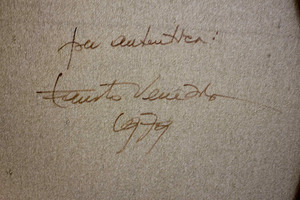 per autentica:
Fausto
1979